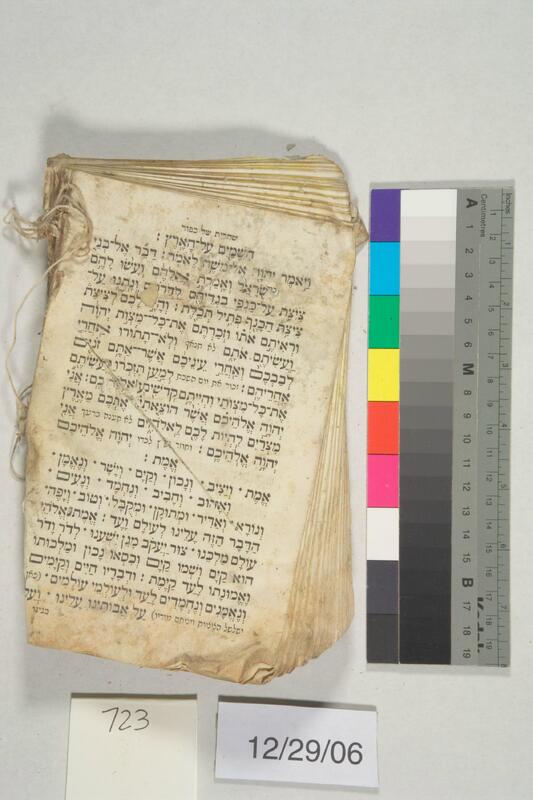 שחרית של כפור
השמים על־הארץ:
ויאמר יהוה אל־משה לאמר: דבר אל־בני
ישראל ואמרת אלהם ועשו להם
ציצת על־כנפי בגדיהם לדרתם ונתנו על־
ציצת הכנף פתיל תכלת: והיה לכם לציצת
וראיתם אתו וזכרתם את־כל־מצות יהוה
ועשיתם אתם ולא־תתורו אחרי
לבבכם ואחרי עיניכם אשר־אתם זנים
אחריהם: למען תזכרו ועשיתם
את־כל־מצותי והייתם קדשים לאלהיכם: אני
יהוה אלהיכם אשר הוצאתי אתכם מארץ
מצרים להיות לכם לאלהים אני
יהוה אלהיכם: יהוה אלהיכם
אמת:
אמת ויציב · ונכון · וקים · וישר · ונאמן ·
ואהוב · וחביב · ונחמד · ונעים ·
ונורא · ואדיר · ומתוקן · ומקבל · וטוב · ויפה
הדבר הזה עלינו לעולם ועד: אמת אלהי
עולם מלכנו · צור יעקב מגן ישענו · לדר ודר
הוא קים ושמו קים וכסאו נכון ומלכותו
ואמונתו לעד קימת: ודבריו חיים וקימים
ונאמנים ונחמדים לעד ולעולמי עולמים ·
על אבותינו עלינו · ועל
בנינו
Inches
Centimetres
A 1 2 3 4 5 6 M 8 9 10 11 12 13 14 15 B 17 18 19
723
12/29/06